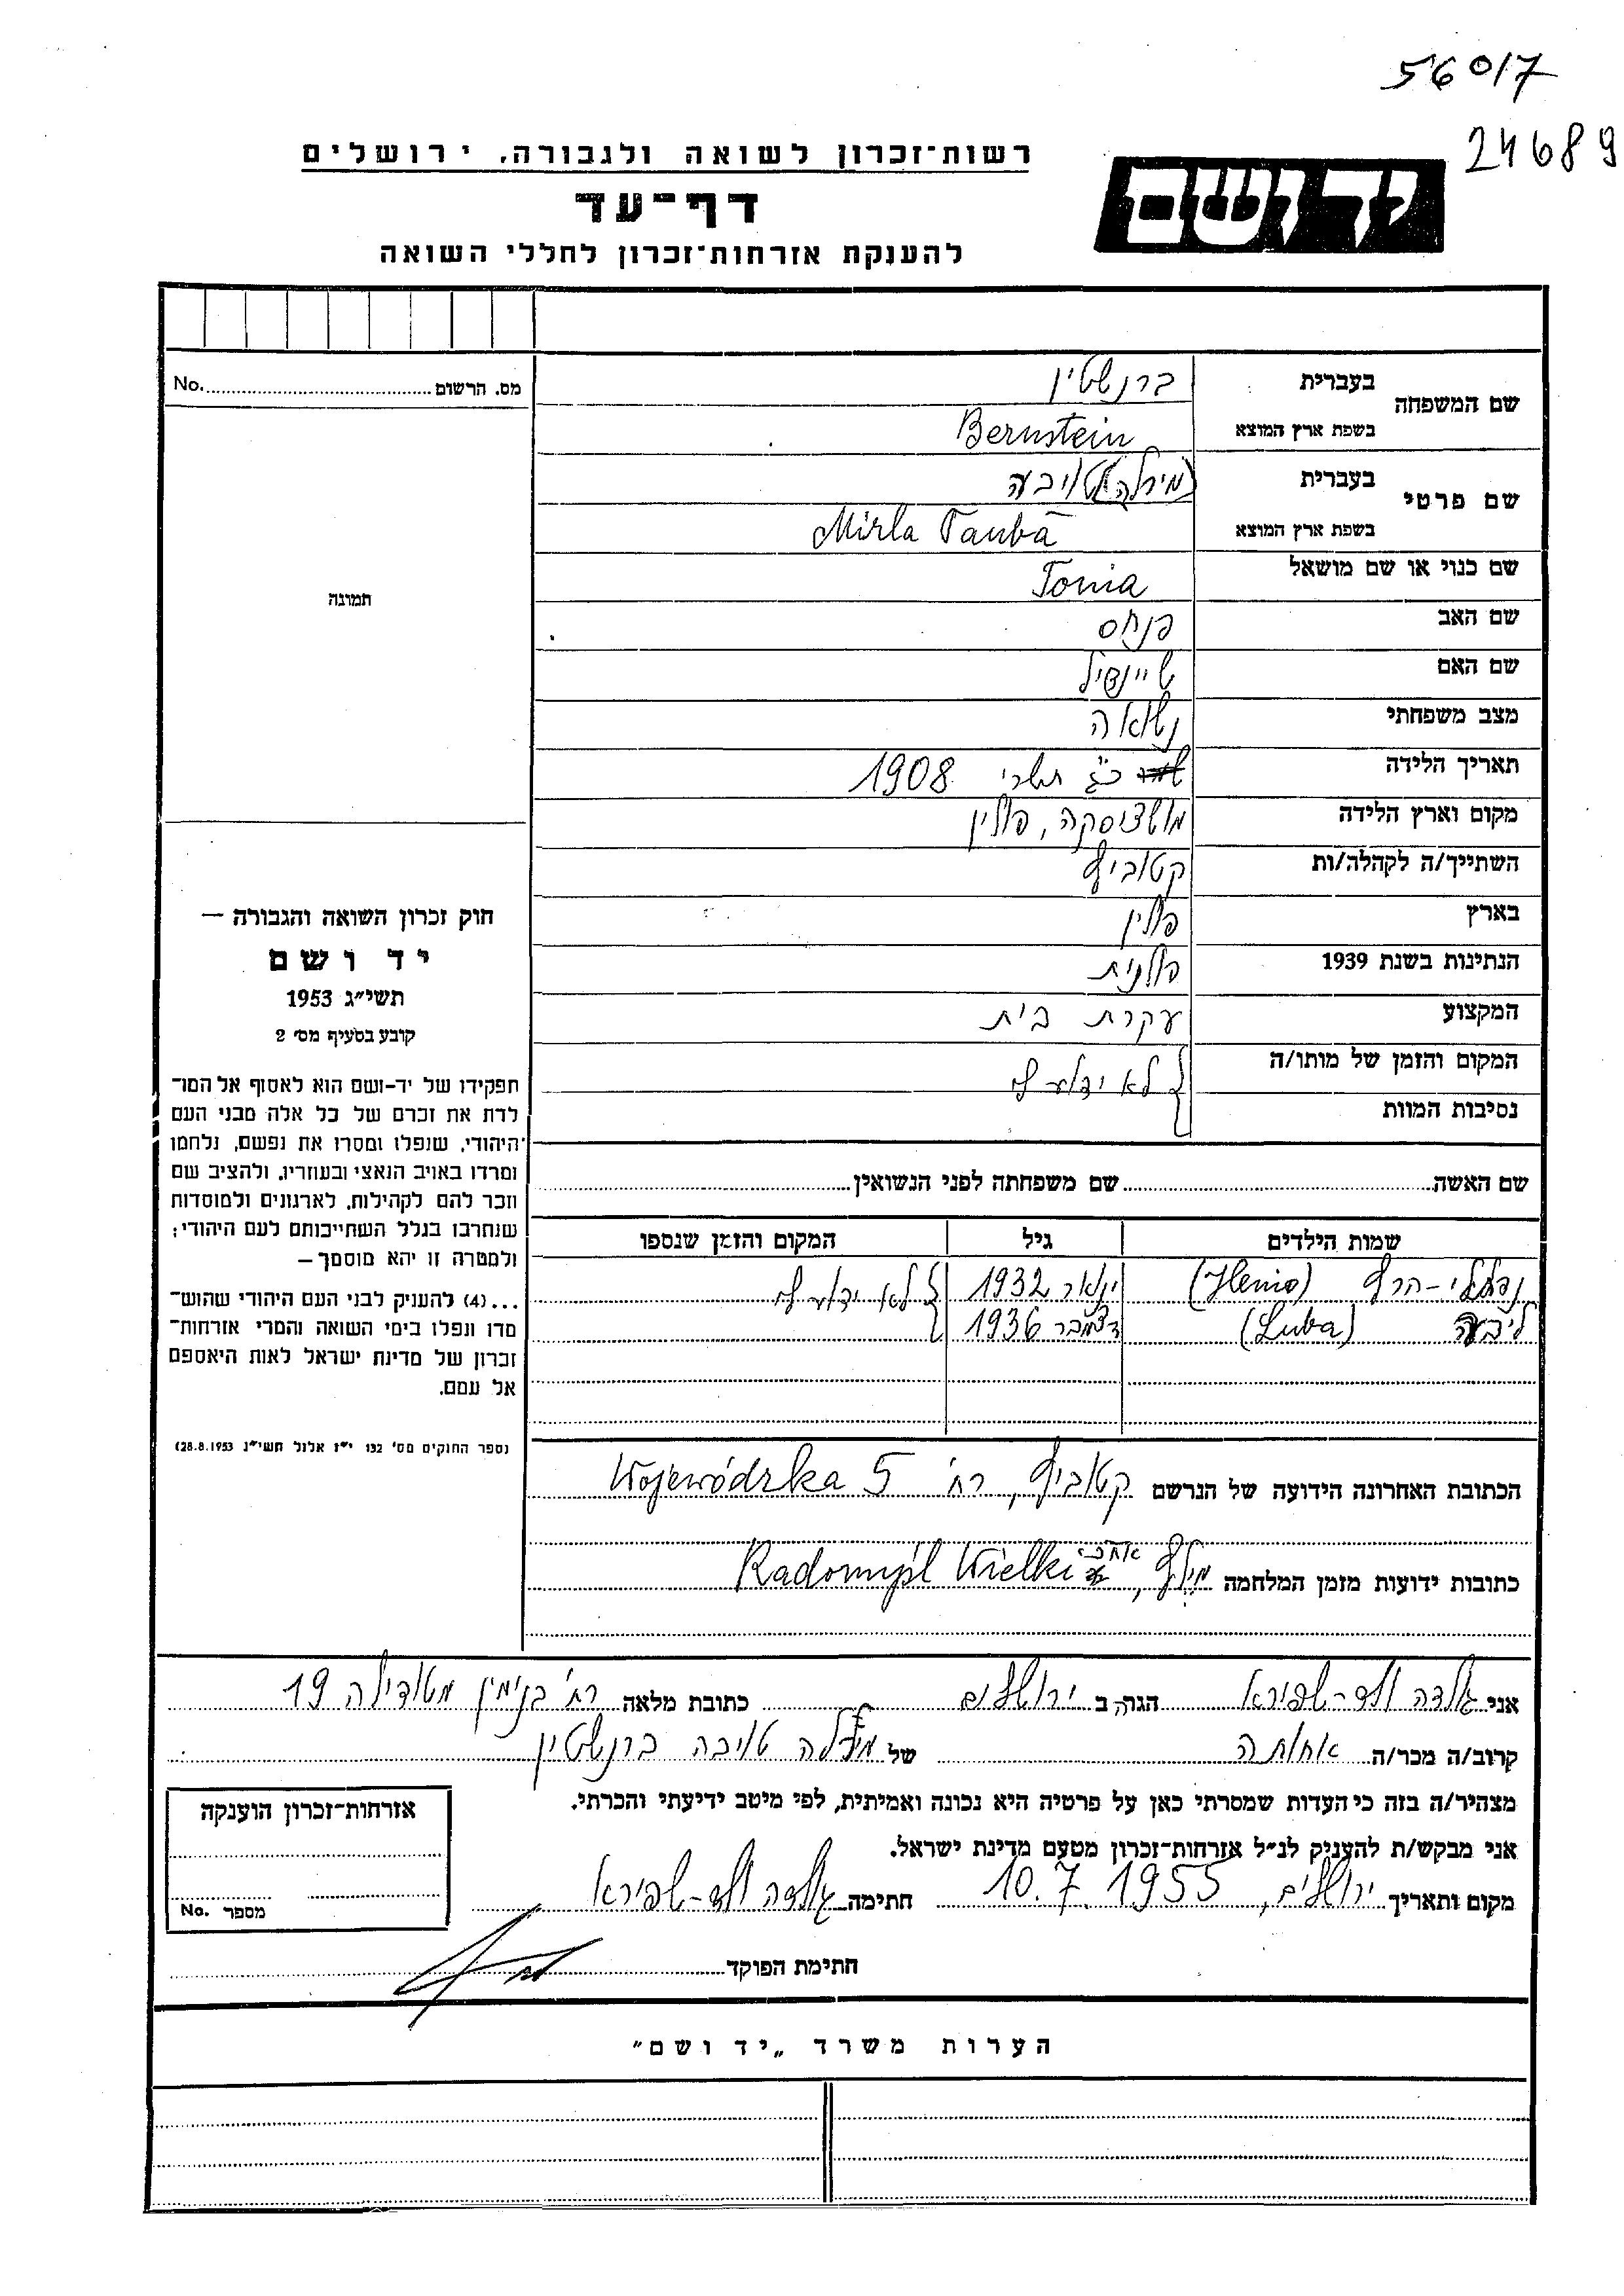 56017
24689
רשות־זכרון לשואה ולגבורה, ירושלים
יד ושם
דף־עד
להענקת אזרחות־זכרון לחללי השואה
מס. הרשום No.
שם המשפחה
בעברית ברנשטין
בשפת ארץ המוצא Bernstein
שם פרטי
בעברית מירלה טויבה
בשפת ארץ המוצא Mirla Tauba
שם כנוי או שם מושאל Tonia
שם האב פנחס
שם האם שיינדיל
מצב משפחתי נשואה
תאריך הלידה כ"ג תשרי 1908
מקום וארץ הלידה מושציסקה, פולין
השתייך/ה לקהלה/ות קטוביץ
בארץ פולין
הנתינות בשנת 1939 פולנית
המקצוע עקרת בית
המקום והזמן של מותו/ה לא ידוע לי
נסיבות המוות
שם האשה שם משפחתה לפני הנשואין
שמות הילדים גיל המקום והזמן שנספו
נפתלי-הרץ (Henio) ינואר 1932 לא ידוע לי
ליבה (Luba) דצמבר 1936
הכתובת האחרונה הידועה של הנרשם קטוביץ, רח' Wojewódzka 5
כתובות ידועות מזמן המלחמה מילץ, אח"כ Radomyśl Wielki
תמונה
חוק זכרון השואה והגבורה —
יד ושם
תשי״ג 1953
קובע בסעיף מס׳ 2
תפקידו של יד-ושם הוא לאסוף אל המו־
לדת את זכרם של כל אלה מבני העם
היהודי, שנפלו ומסרו את נפשם, נלחמו
ומרדו באויב הנאצי ובעוזריו, ולהציב שם
וזכר להם לקהילות, לארגונים ולמוסדות
שנחרבו בגלל השתייכותם לעם היהודי;
ולמטרה זו יהא מוסמך —
...(4) להעניק לבני העם היהודי שהוש־
מדו ונפלו בימי השואה והמרי אזרחות־
זכרון של מדינת ישראל לאות היאספם
אל עמם.
(ספר החוקים מס׳ 132 י״ז אלול תשי״ג 28.8.1953)
אני גולדה ולד-שפירא הגרה ב ירושלים כתובת מלאה רח' בנימין מטודילה 19
קרוב/ה מכר/ה אחותה של מירלה טויבה ברנשטין
מצהיר/ה בזה כי העדות שמסרתי כאן על פרטיה היא נכונה ואמיתית, לפי מיטב ידיעתי והכרתי.
אני מבקש/ת להעניק לנ״ל אזרחות־זכרון מטעם מדינת ישראל.
מקום ותאריך ירושלים, 10.7.1955 חתימה גולדה ולד-שפירא
חתימת הפוקד
אזרחות־זכרון הוענקה
מספר No.
הערות משרד „יד ושם"